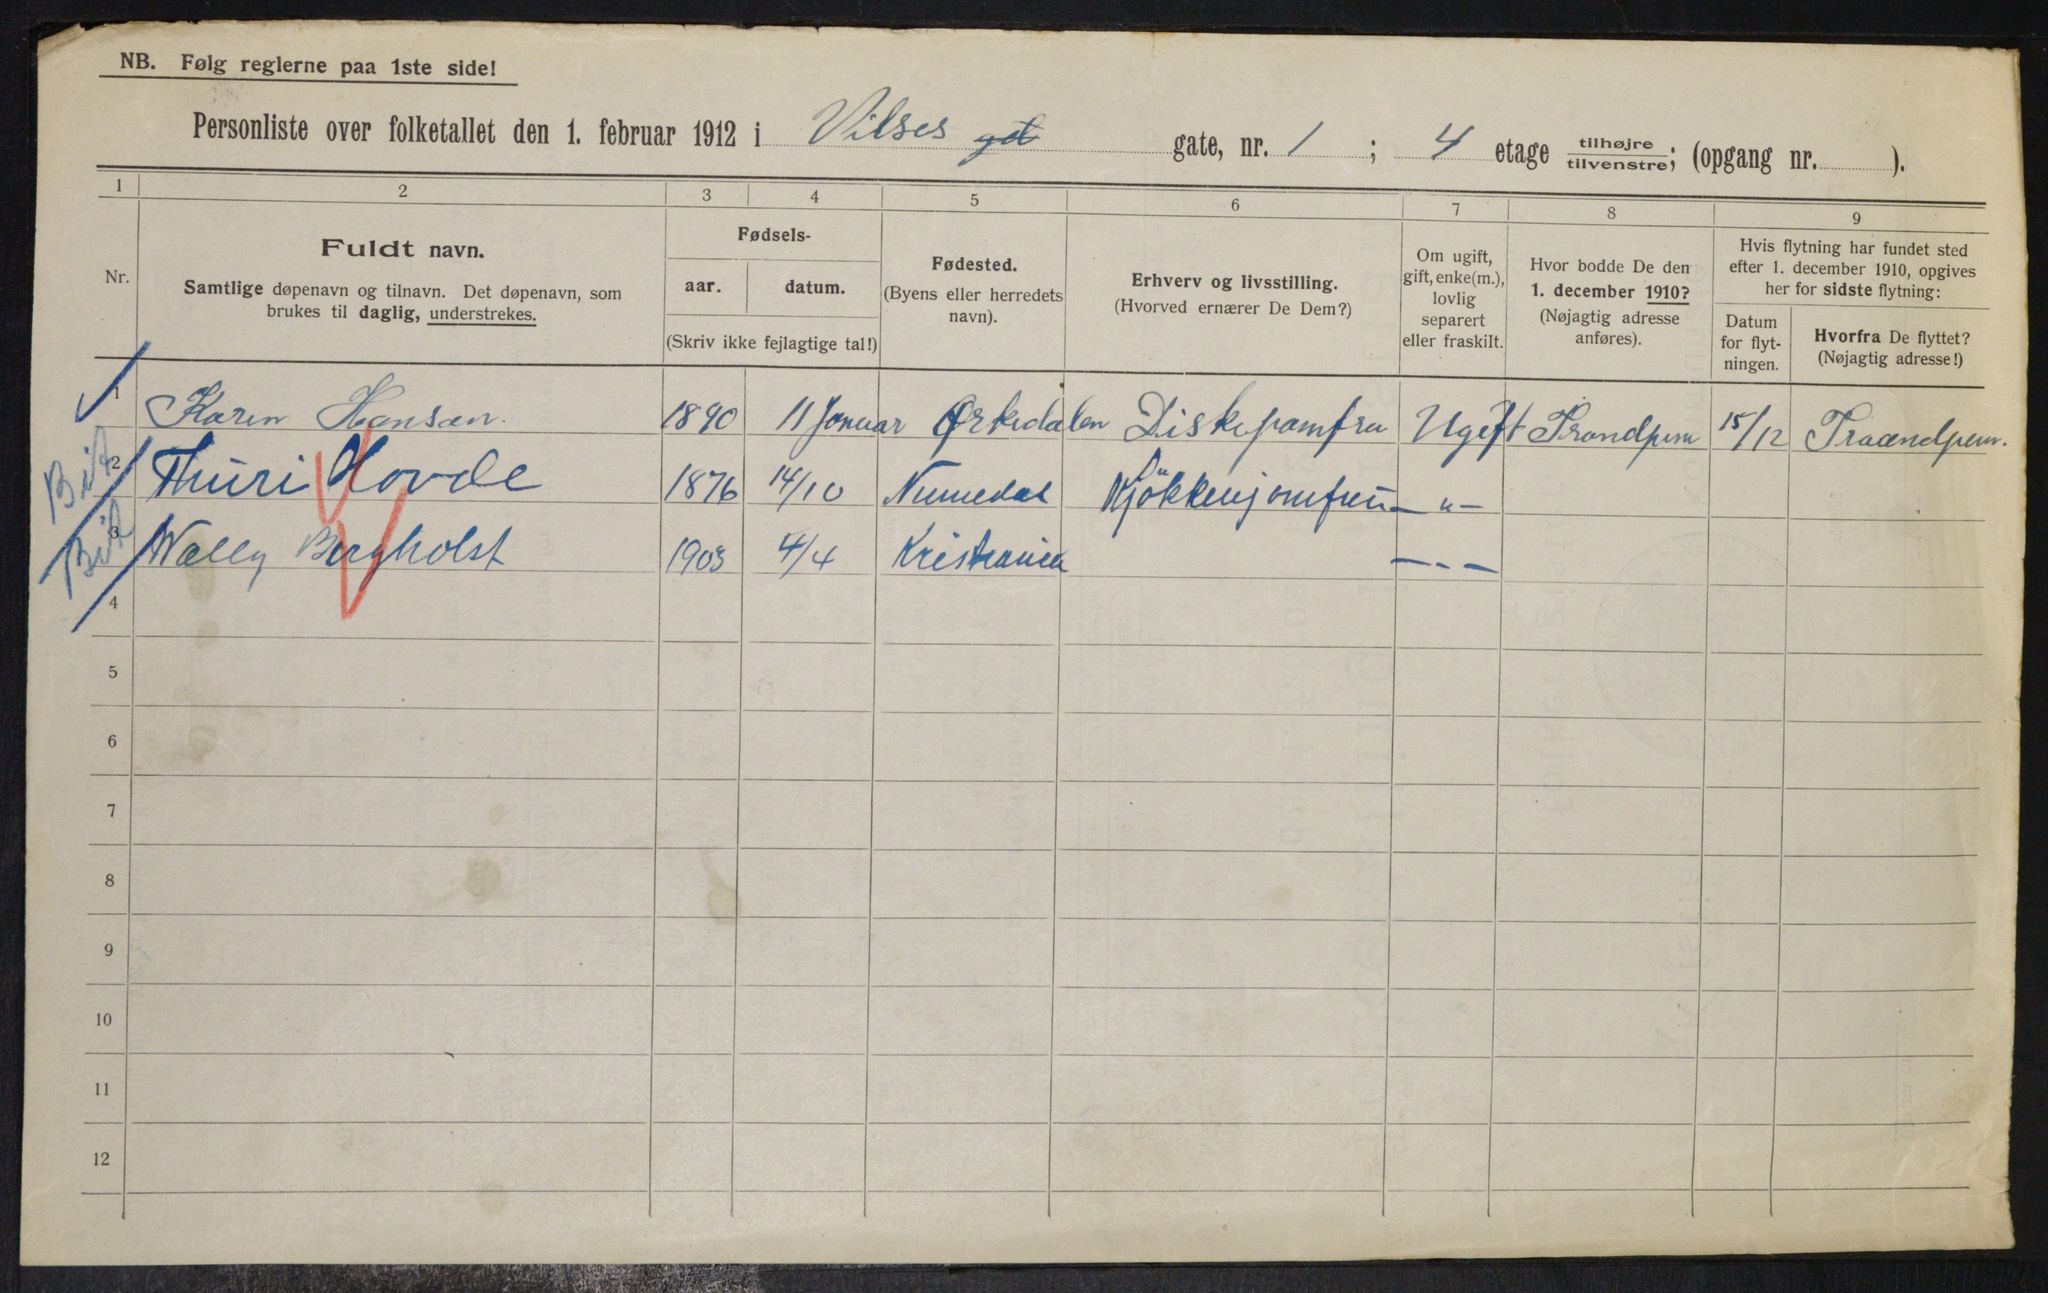 NB. Følg reglerne paa 1ste side!
Personliste over folketallet den 1. februar 1912 i Vilses gt gate, nr. 1 ; 4 etage tilhøjre tilvenstre; (opgang nr. ).
1 2 3 4 5 6 7 8 9
Nr.
Fuldt navn.
Samtlige døpenavn og tilnavn. Det døpenavn, som
brukes til daglig, understrekes.
Fødsels-
aar. datum.
(Skriv ikke fejlagtige tal!)
Fødested.
(Byens eller herredets
navn).
Erhverv og livsstilling.
(Hvorved ernærer De Dem?)
Om ugift,
gift, enke(m.),
lovlig
separert
eller fraskilt.
Hvor bodde De den
1. december 1910?
(Nøjagtig adresse
anføres).
Hvis flytning har fundet sted
efter 1. december 1910, opgives
her for sidste flytning:
Datum
for flyt-
ningen.
Hvorfra De flyttet?
(Nøjagtig adresse!)
1 Karen Hansen. 1890 11 Januar Ørkedalen Diskejomfru Ugift Trondjem 15/12
Bit 2 Thuri Hovde 1876 14/10 Numedal Kjökkenjomfru — " —
Bit 3 Wally Bergholst 1903 4/4 Kristiania — - —
4
5
6
7
8
9
10
11
12